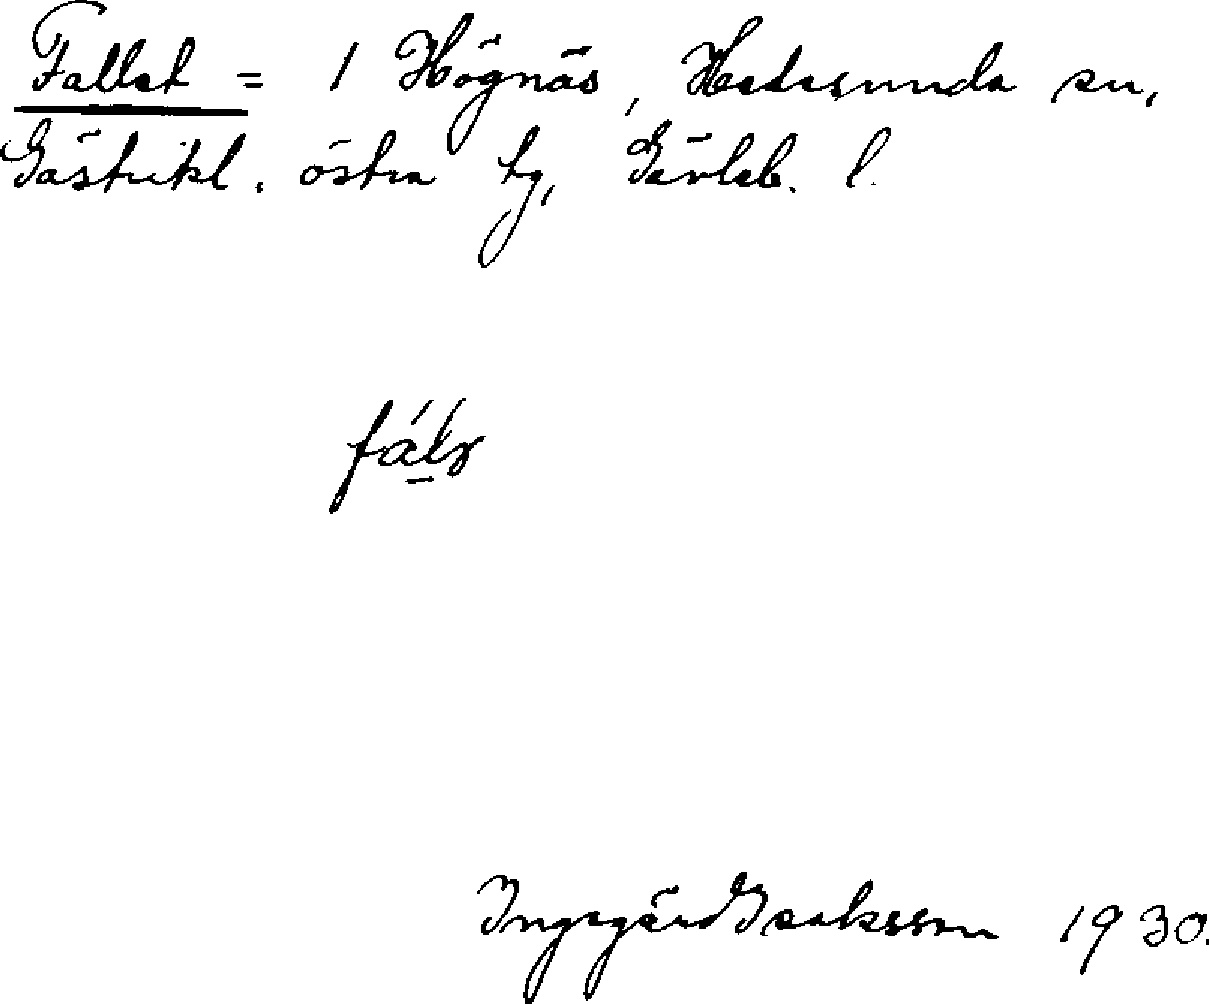 Fallet = 1 Högnäs, Hedesunda sn,
Gästrikl. östra tg, Gävleb. l.
Ingegärd Isaksson 1930.